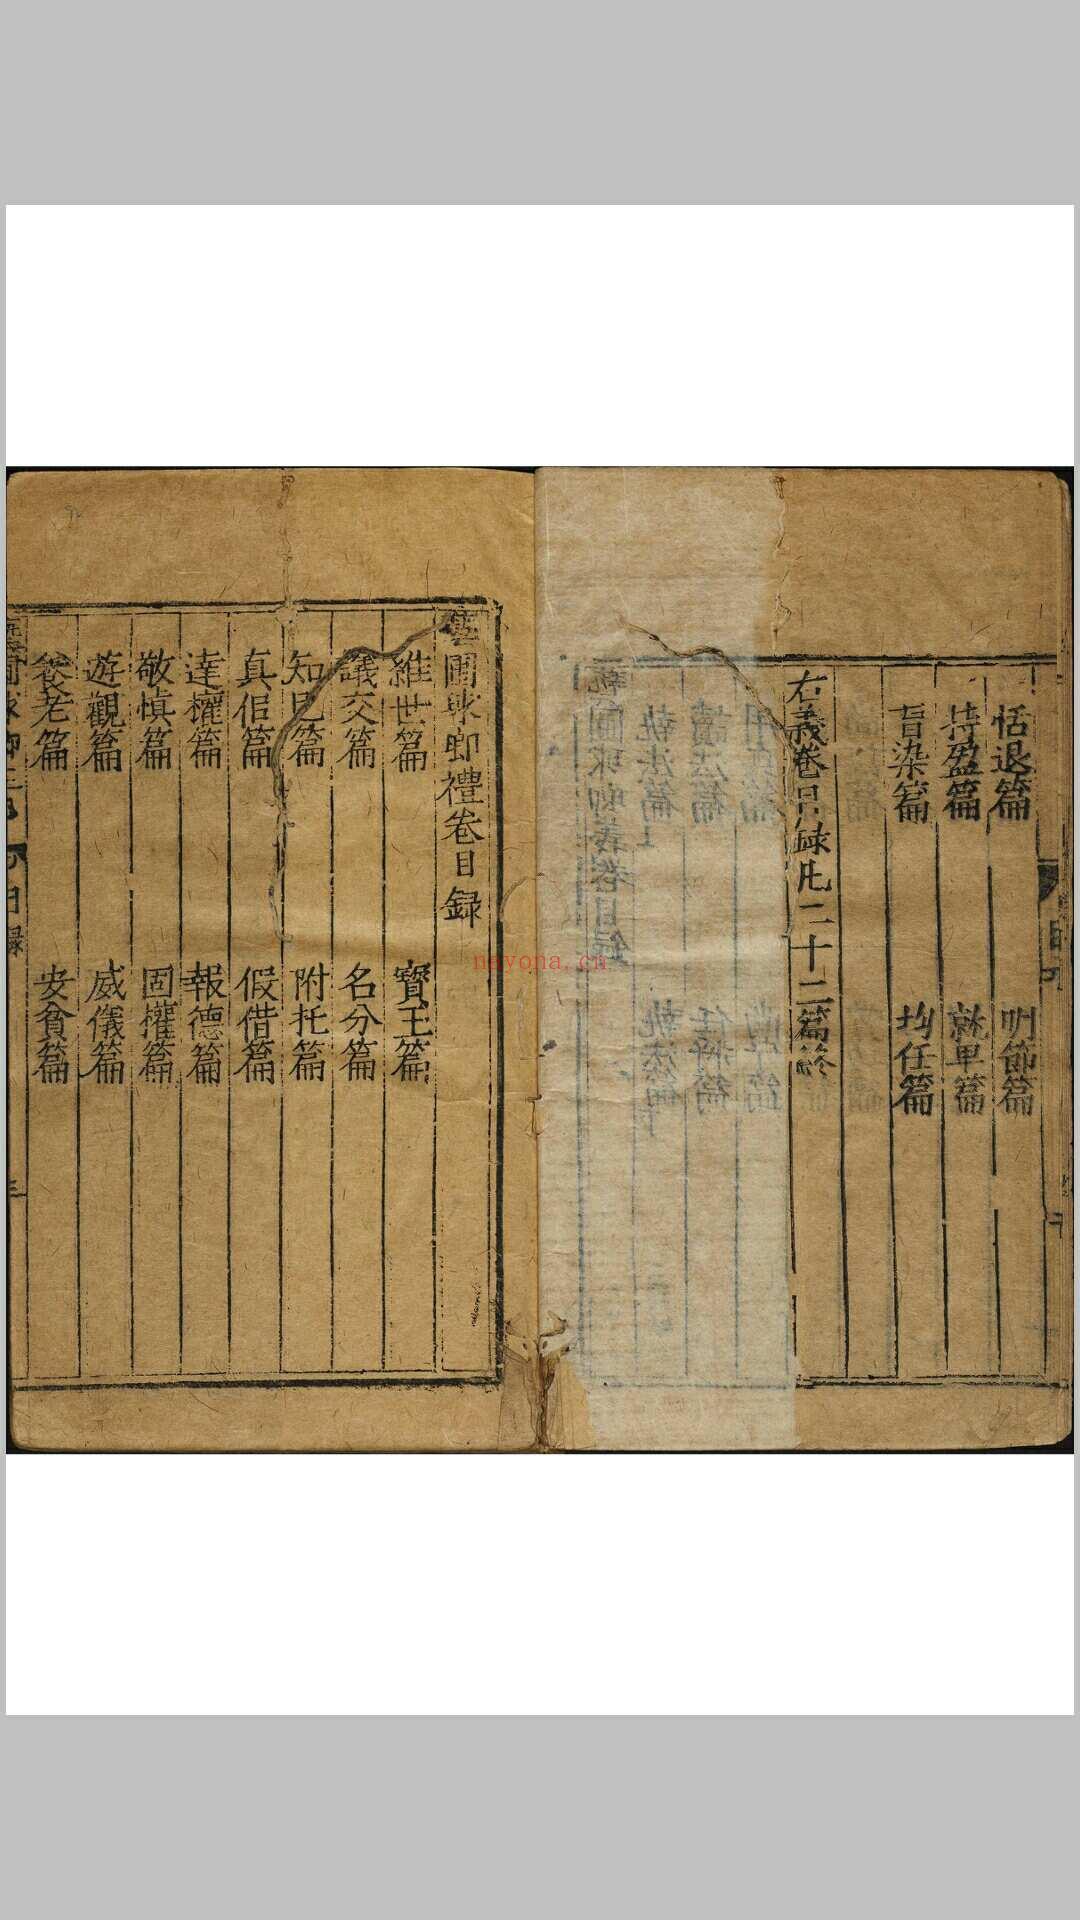 恬退篇 明節篇
持盈篇 就卑篇
盲染篇 均任篇
右義卷目錄凡二十二篇終
雲圃球瑯禮卷目錄
維世篇 寶王篇
議交篇 名分篇
知己篇 附托篇
真侶篇 假借篇
達權篇 報德篇
敬慎篇 固權篇
遊觀篇 威儀篇
養老篇 安貧篇
目錄
nayona.cn